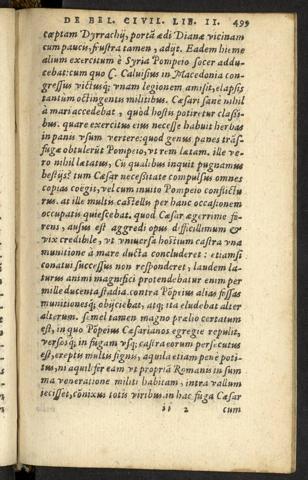 DE BEL. CIVIL. LIB. II. 499
cœptam Dyrrachij, portā ædi Dianæ vicinam
cum paucis, frustra tamen, adijt. Eadem hieme
alium exercitum è Syria Pompeio socer addu-
cebat: cum quo C. Caluisius in Macedonia con-
gressus victusq; vnam legionem amisit, elapsis
tantùm octingentis militibus. Cæsari sanè nihil
à mari accedebat, quòd hostis potiretur classi-
bus. quare exercitus eius necesse habuit herbas
in panis vsum vertere: quod genus panes trās-
fugæ obtulerūt Pompeio, vt rem lætam. ille ve-
rò nihil lætatus, Cū qualibus inquit pugnamus
bestijs? tum Cæsar necessitate compulsus omnes
copias coëgit, vel cum inuito Pompeio conflictu
rus. at ille multis castellis per hanc occasionem
occupatis quiescebat. quod Cæsar ægerrimè fe-
rens, ausus est aggredi opus difficillimum &
vix credibile, vt vniuersa hostium castra vna
munitione à mare ducta concluderet: etiamsi
conatui successus non responderet, laudem la-
turus animi magnifici protendebatur enim per
mille ducenta stadia. contrà Pōpeius alias fossas
munitionesq; obijciebat, atq; ita eludebat alter
alterum. semel tamen magno prælio certatum
est, in quo Pōpeius Cæsarianos egregiè repulit,
versosq; in fugam vsq; castra eorum persecutus
est, ereptis multis signis, aquila etiam penè poti-
tus, ni aquilifer eam vt propriā Romanis in sum
ma veneratione militi habitam, intra vallum
iecisset, cōnixus totis viribus. in hac fuga Cæsar
ii 2 cum